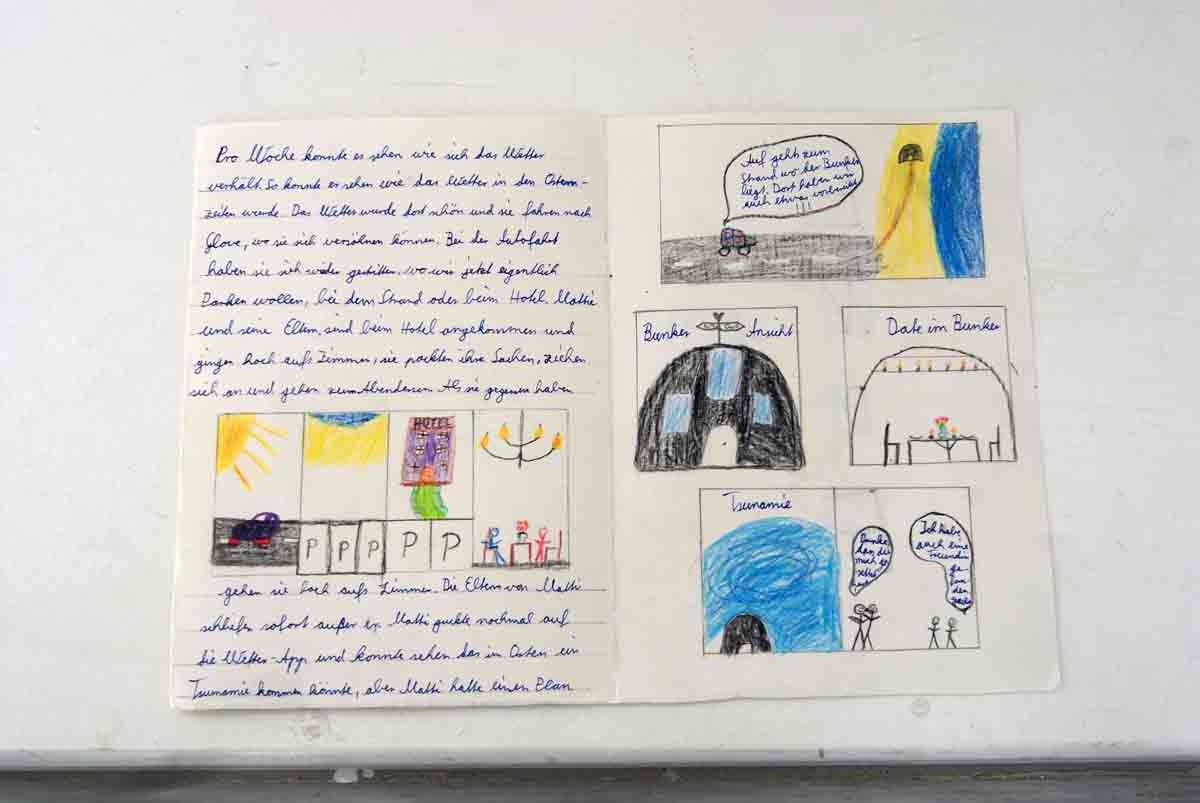 Pro Woche konnte es sehen wie sich das Wetter
verhält. So konnte es sehen wie das Wetter in den Ostern-
zeiten werde. Das Wetter wurde dort schön und sie fahren nach
Glove, wo sie sich versöhnen können. Bei der Autofahrt
haben sie sich wieder gestritten, wo wir jetzt eigentlich
Parken wollen, bei dem Strand oder beim Hotel. Matti
und seine Eltern, sind beim Hotel angekommen und
gingen hoch aufs Zimmer, sie packten ihre Sachen, ziehen
sich an und gehen zum Abendessen. Als sie gegessen haben
HOTEL
P P P P P
gehen sie hoch aufs Zimmer. Die Eltern von Matti
schliefen sofort außer er. Matti guckte nochmal auf
die Wetter-App und konnte sehen das in Osten ein
Tsunamie kommen könnte, aber Matti hatte einen Plan
Auf geht's zum
Strand wo der Bunker
liegt. Dort haben wir
auch etwas vorbereitet
!!!
Bunker Ansicht
Date im Bunker
Tsunamie
Danke
das du
mich ge-
Ich habe
auch eine
Freundin
ge
fun
den